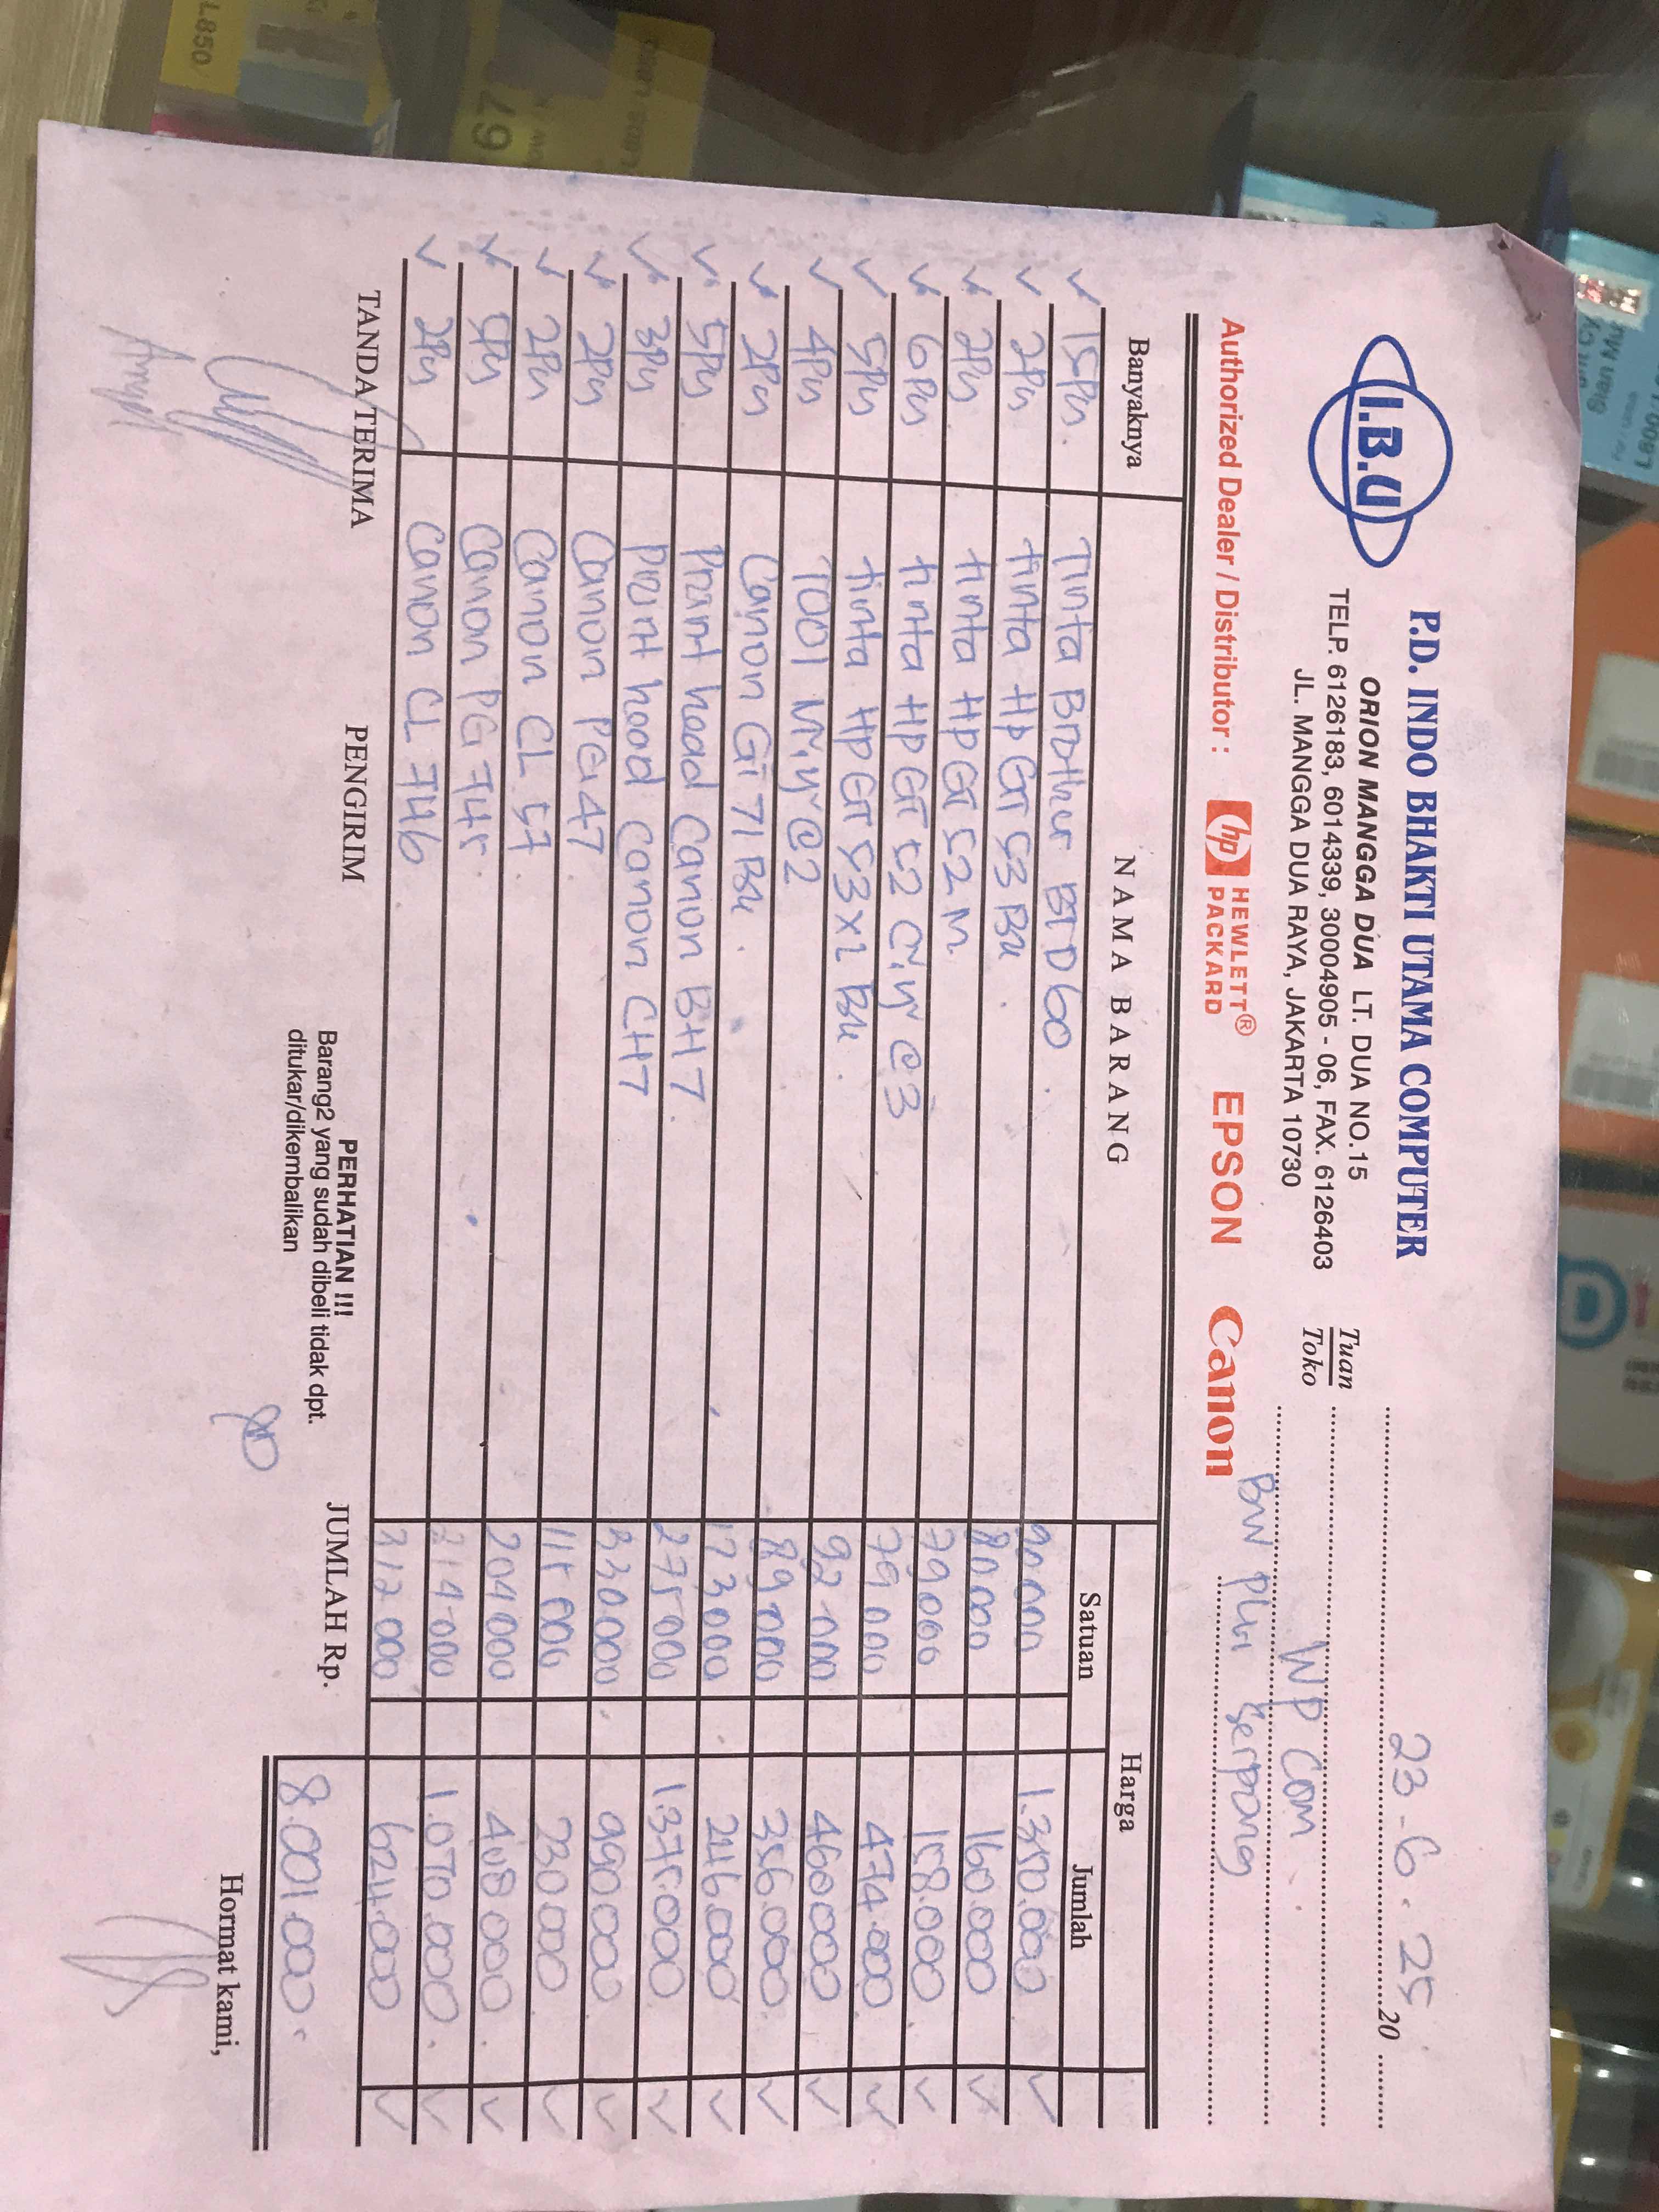 I.B.U
P.D. INDO BHAKTI UTAMA COMPUTER
ORION MANGGA DUA LT. DUA NO.15
TELP. 6126183, 6014339, 30004905 - 06, FAX. 6126403
JL. MANGGA DUA RAYA, JAKARTA 10730
23-6-25 20
Tuan
Toko
WP Com
BW Serpong
Authorized Dealer / Distributor : hp HEWLETT® PACKARD EPSON Canon
Banyaknya NAMA BARANG Harga
Satuan Jumlah
15Pcs. Tinta Brother BTD60. 90000 1.350.000
2Pcs tinta HP GT 53 Bk. 80000 160.000
2Pcs tinta HP GT 52 M 79000 158.000
6Pcs tinta HP GT 52 C,Y @3 79000 474.000
5Pcs tinta HP GT 53 XL Bk. 92.000 460000
4Pcs T001 M,Y @2 89.000 356.000
2Pcs Canon GI 71 Bk. 123000 246.000
5Pcs Print head Canon BH7. 275.000 1.375.000
3Pcs Print head Canon CH7 330000. 990.000
2Pcs Canon PG 47 115.000 230.000
2Pcs Canon CL 57. 204000 408.000.
5Pcs Canon PG 745. 214.000 1.070.000.
2Pcs Canon CL 746. 312.000 624.000
TANDA TERIMA PENGIRIM
PERHATIAN !!!
Barang2 yang sudah dibeli tidak dpt.
ditukar/dikembalikan
JUMLAH Rp. 8.001.000.
Hormat kami,
L850